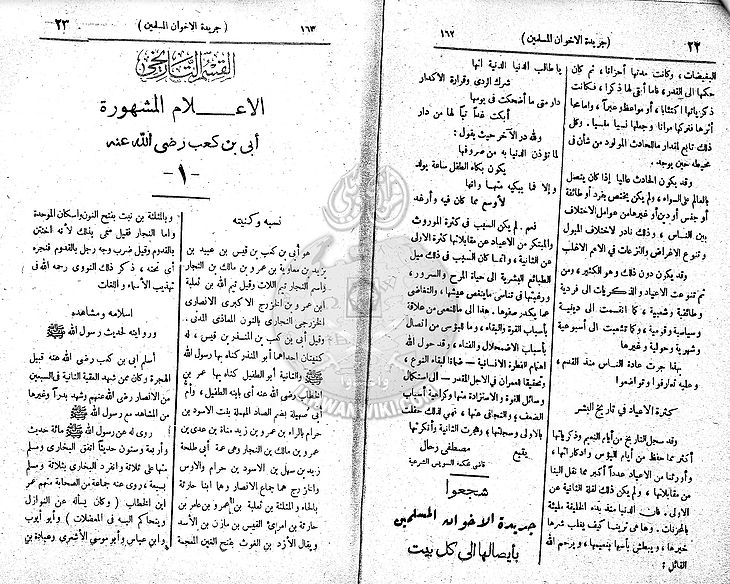 ٢٢ (جريدة الاخوان المسلمين) ١٦٢
البغيضات ، وكانت مدتها أحزانا ، ثم كان
حكمها الى القدر ، فاما أتى لها ذكرا ، فكانت
ذكرياتها اكتئابا ، أو مواعظ وعبراً ، واما محا
أثرها فتركها مواتا وجعلها نسيا منسيا . وكل
ذلك تابع لمقدار ما للحادث المولود من شأن فى
محيطه حين يوجد .
وقد يكون الحادث عالميا إذا كان يتصل
بالعالم على السواء ، ولم يكن يختص بفرد أو طائفة
أو جنس أو دين أو غيرها من عوامل الاختلاف
بين الناس ، وذلك نادر لاختلاف الميول
وتنوع الاغراض والنزعات في الاعم الاغلب
وقد يكون دون ذلك وهو الكثير ، ومن
ثم تنوعت الاعياد والذكريات الى فردية
وطائفية وشعبية ، كما انقسمت الى دينية
وسياسية وقومية ، وكما تشعبت الى أسبوعية
وشهرية وحولية وغيرها
بهذا جرت عادة الناس منذ القدم ،
وعليه تعارفوا وتواضعوا
كثرة الاعياد في تاريخ البشر
وقد سجل التاريخ من أيام النعيم وذكرياتها
أكثر مما حفظ من أيام البؤس وادكاراتها ،
وأورثنا من الاعياد عدداً أكبر مما نقل الينا
من مقابلاتها ، ولم يكن ذلك لقلة الثانية عن
الاولى . فان الدنيا منذ بدء الخليقة مليئة
بالمحزنات . وها هى ترينا كيف يغلب شرها
خيرها ، ويبطش بأسها بنعيمها ، ويرحم الله
القائل :
يا طالب الدنيا الدنية انها
شرك الردى وقرارة الاكدار
دار متى ما أضحكت فى يومها
أبكت غداً تبًا لها من دار
ولله در الآخر حيث يقول :
لما تؤذن الدنيا به من صروفها
يكون بكاء الطفل ساعة يولد
وإلا فما يبكيه منها وانها
لأوسع مما كان فيه وأرغد
نعم . لم يكن السبب فى كثرة الموروث
والمبتكر من الاعياد عن مقابلاتها كثرة الاولى
عن الثانية ، وانما كان السبب فى ذلك ميل
الطبائع البشرية الى حياة المرح والسرور ،
ورغبتها فى تناسى ما ينغص عيشها ، والتغاضى
عما يكدر صفوها . هذا الى ما للنعمى من علاقة
بأسباب القوة والبقاء ، وما للبؤسى من اتصال
بأسباب الاضمحلال والفناء ، وقد حول الله
اهتمام الفطرة الانسانية — ضمانا لبقاء النوع ،
وتحقيقا لعمران في الاجل المقدر — الى استكمال
وسائل القوة والاستزادة منها وكراهية أسباب
الضعف والتجافى عنها ، فهي لذلك حفلت
بالاولى وسجلتها ، وهجرت الثانية وأنكرتها
يتبع مصطفى رحال
قاضى محكمة السويس الشرعية
شجعوا
جريدة الاخوان المسلمين
بايصالها الى كل بيت
١٦٣ (جريدة الاخوان المسلمين) ٢٣
القسم التاريخى
الاعلام المشهورة
أبى بن كعب رضى الله عنه
— ١ —
نسبه وكنيته
هو أبى بن كعب بن قيس بن عبيد بن
يزيد بن معاوية بن عمرو بن مالك بن النجار
واسم النجار تيم اللات وقيل تيم الله بن ثعلبة
ابن عمرو بن الخزرج الاكبرى الانصارى
الخزرجى النجارى بالنون المعاذى المدنى .
وقيل أبى بن كعب بن المنذر بن قيس ، له
كنيتان احداهما أبو المنذر كناه بها رسول الله
ﷺ والثانية أبو الطفيل كناه بها عمر بن
الخطاب رضى الله عنه أى بابنه الطفيل ، وأم
أبى صهيلة بضم الصاد المهملة بنت الاسود بن
حرام بالراء بن عمرو بن زيد مناة بن عدى بن
عمرو بن مالك بن النجار وهى عمة أبى طلحة
زيد بن سهل بن الاسود بن حرام والاوس
والخزرج هما جماع الانصار وهما ابنا حارثة
بالحاء والمثلثة بن ثعلبة بن عمرو بن عامر بن
حارثة بن امرئ القيس بن مازن بن الأسد
ويقال الأزد بن الغوث بفتح الغين المعجمة
وبالمثلثة بن نبت بفتح النون واسكان الموحدة
واما النجار فقيل سمى بذلك لأنه اختتن
بالقدوم وقيل ضرب وجه رجل بالقدوم فنجره
أى نحته ، ذكر ذلك النووى رحمه الله فى
تهذيب الأسماء واللغات
اسلامه ومشاهده
وروايته لحديث رسول الله ﷺ
أسلم أبى بن كعب رضى الله عنه قبيل
الهجرة وكان ممن شهد العقبة الثانية فى السبعين
من الانصار رضى الله عنهم وشهد بدراً وغيرها
من المشاهد مع رسول الله ﷺ
روى له عن رسول الله ﷺ مائة حديث
وأربعة وستون حديثاً اتفق البخارى ومسلم
منها على ثلاثة وانفرد البخارى بثلاثة ومسلم
بسبعة ، وروى عنه جماعة من الصحابة منهم عمر
ابن الخطاب (وكان يسأله عن النوازل
ويتحاكم اليه فى المعضلات) وأبو أيوب
وابن عباس وأبو موسى الأشعرى وعبادة بن